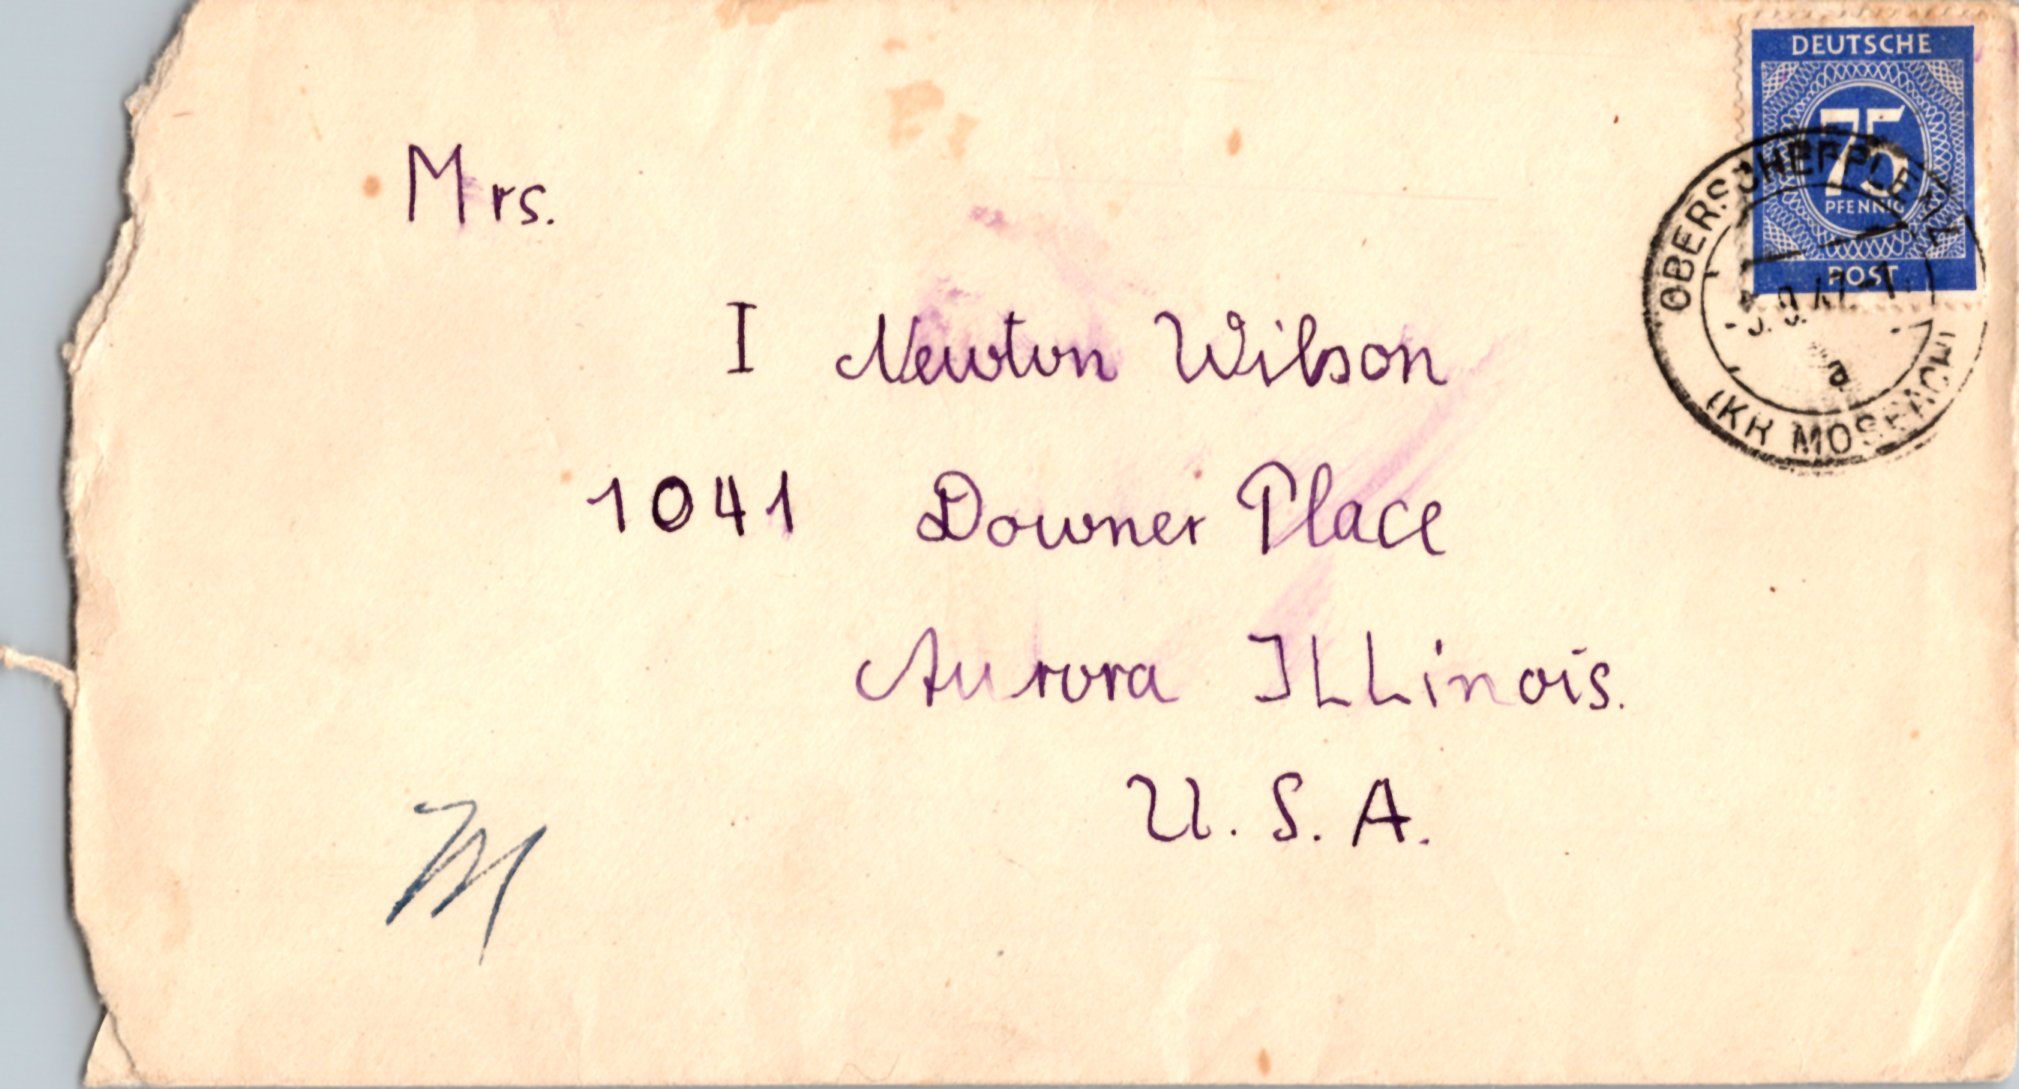 DEUTSCHE
75
PFENNIG
POST
OBERSCHEFFLENZ
a
(KR MOSBACH)
Mrs.
I Newton Wilson
1041 Downer Place
Aurora ILLinois.
U. S. A.
M